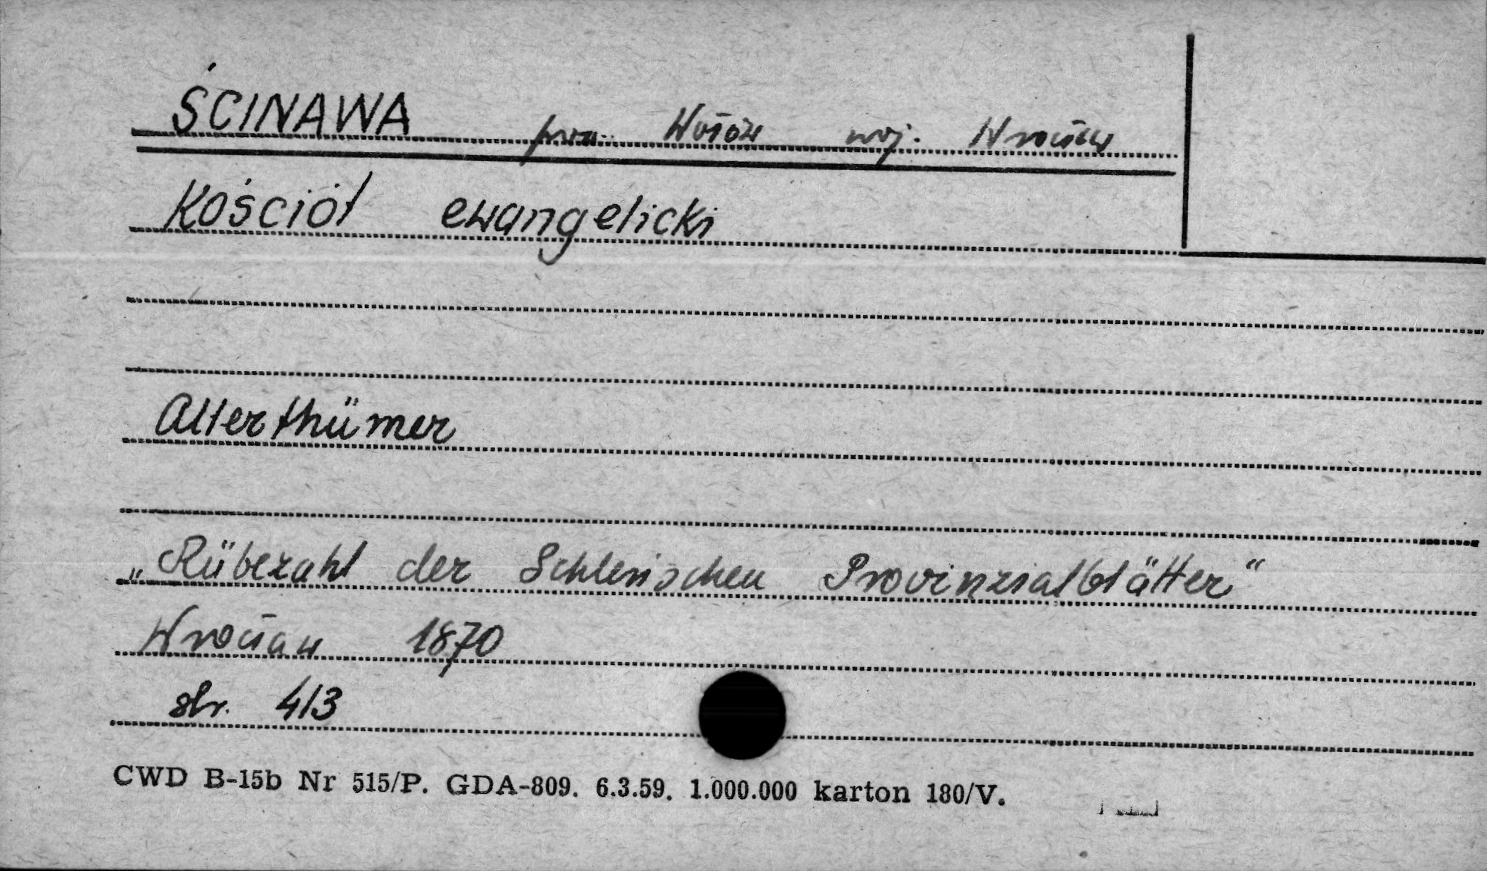 ŚCINAWA pow. Wołów woj. Wrocław
Kościół ewangelicki
Alterthümer
„Rübezahl der Schlesischen Provinzialblätter"
Wrocław 1870
str. 413
CWD B-15b Nr 515/P. GDA-809. 6.3.59. 1.000.000 karton 180/V.